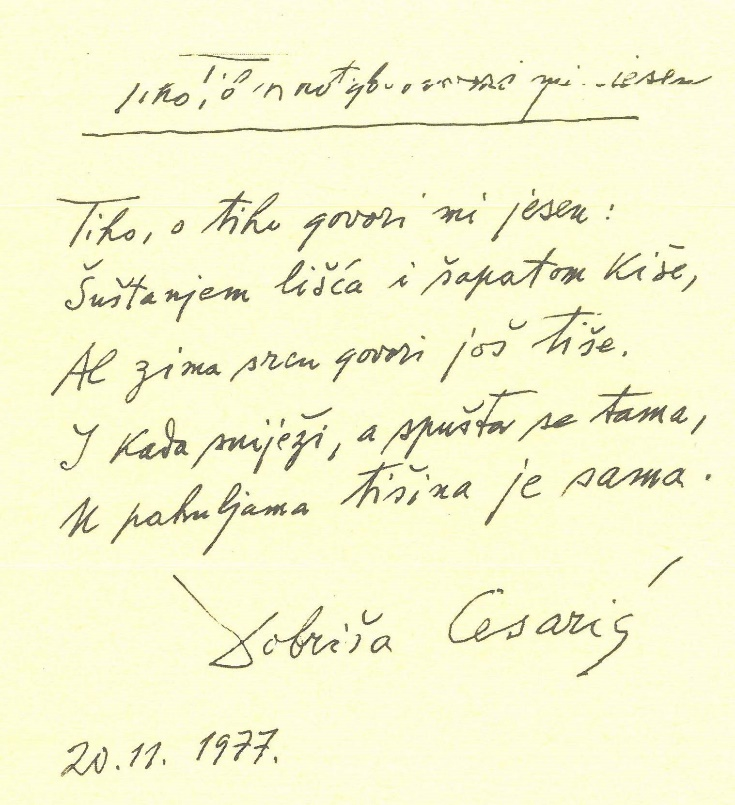 mi jesen
Tiho, o tiho govori mi jesen:
Šuštanjem lišća i šapatom kiše,
Al zima srcu govori još tiše.
I kada sniježi, a spušta se tama,
U pahuljama tišina je sama.
Dobriša Cesarić
20.11. 1977.